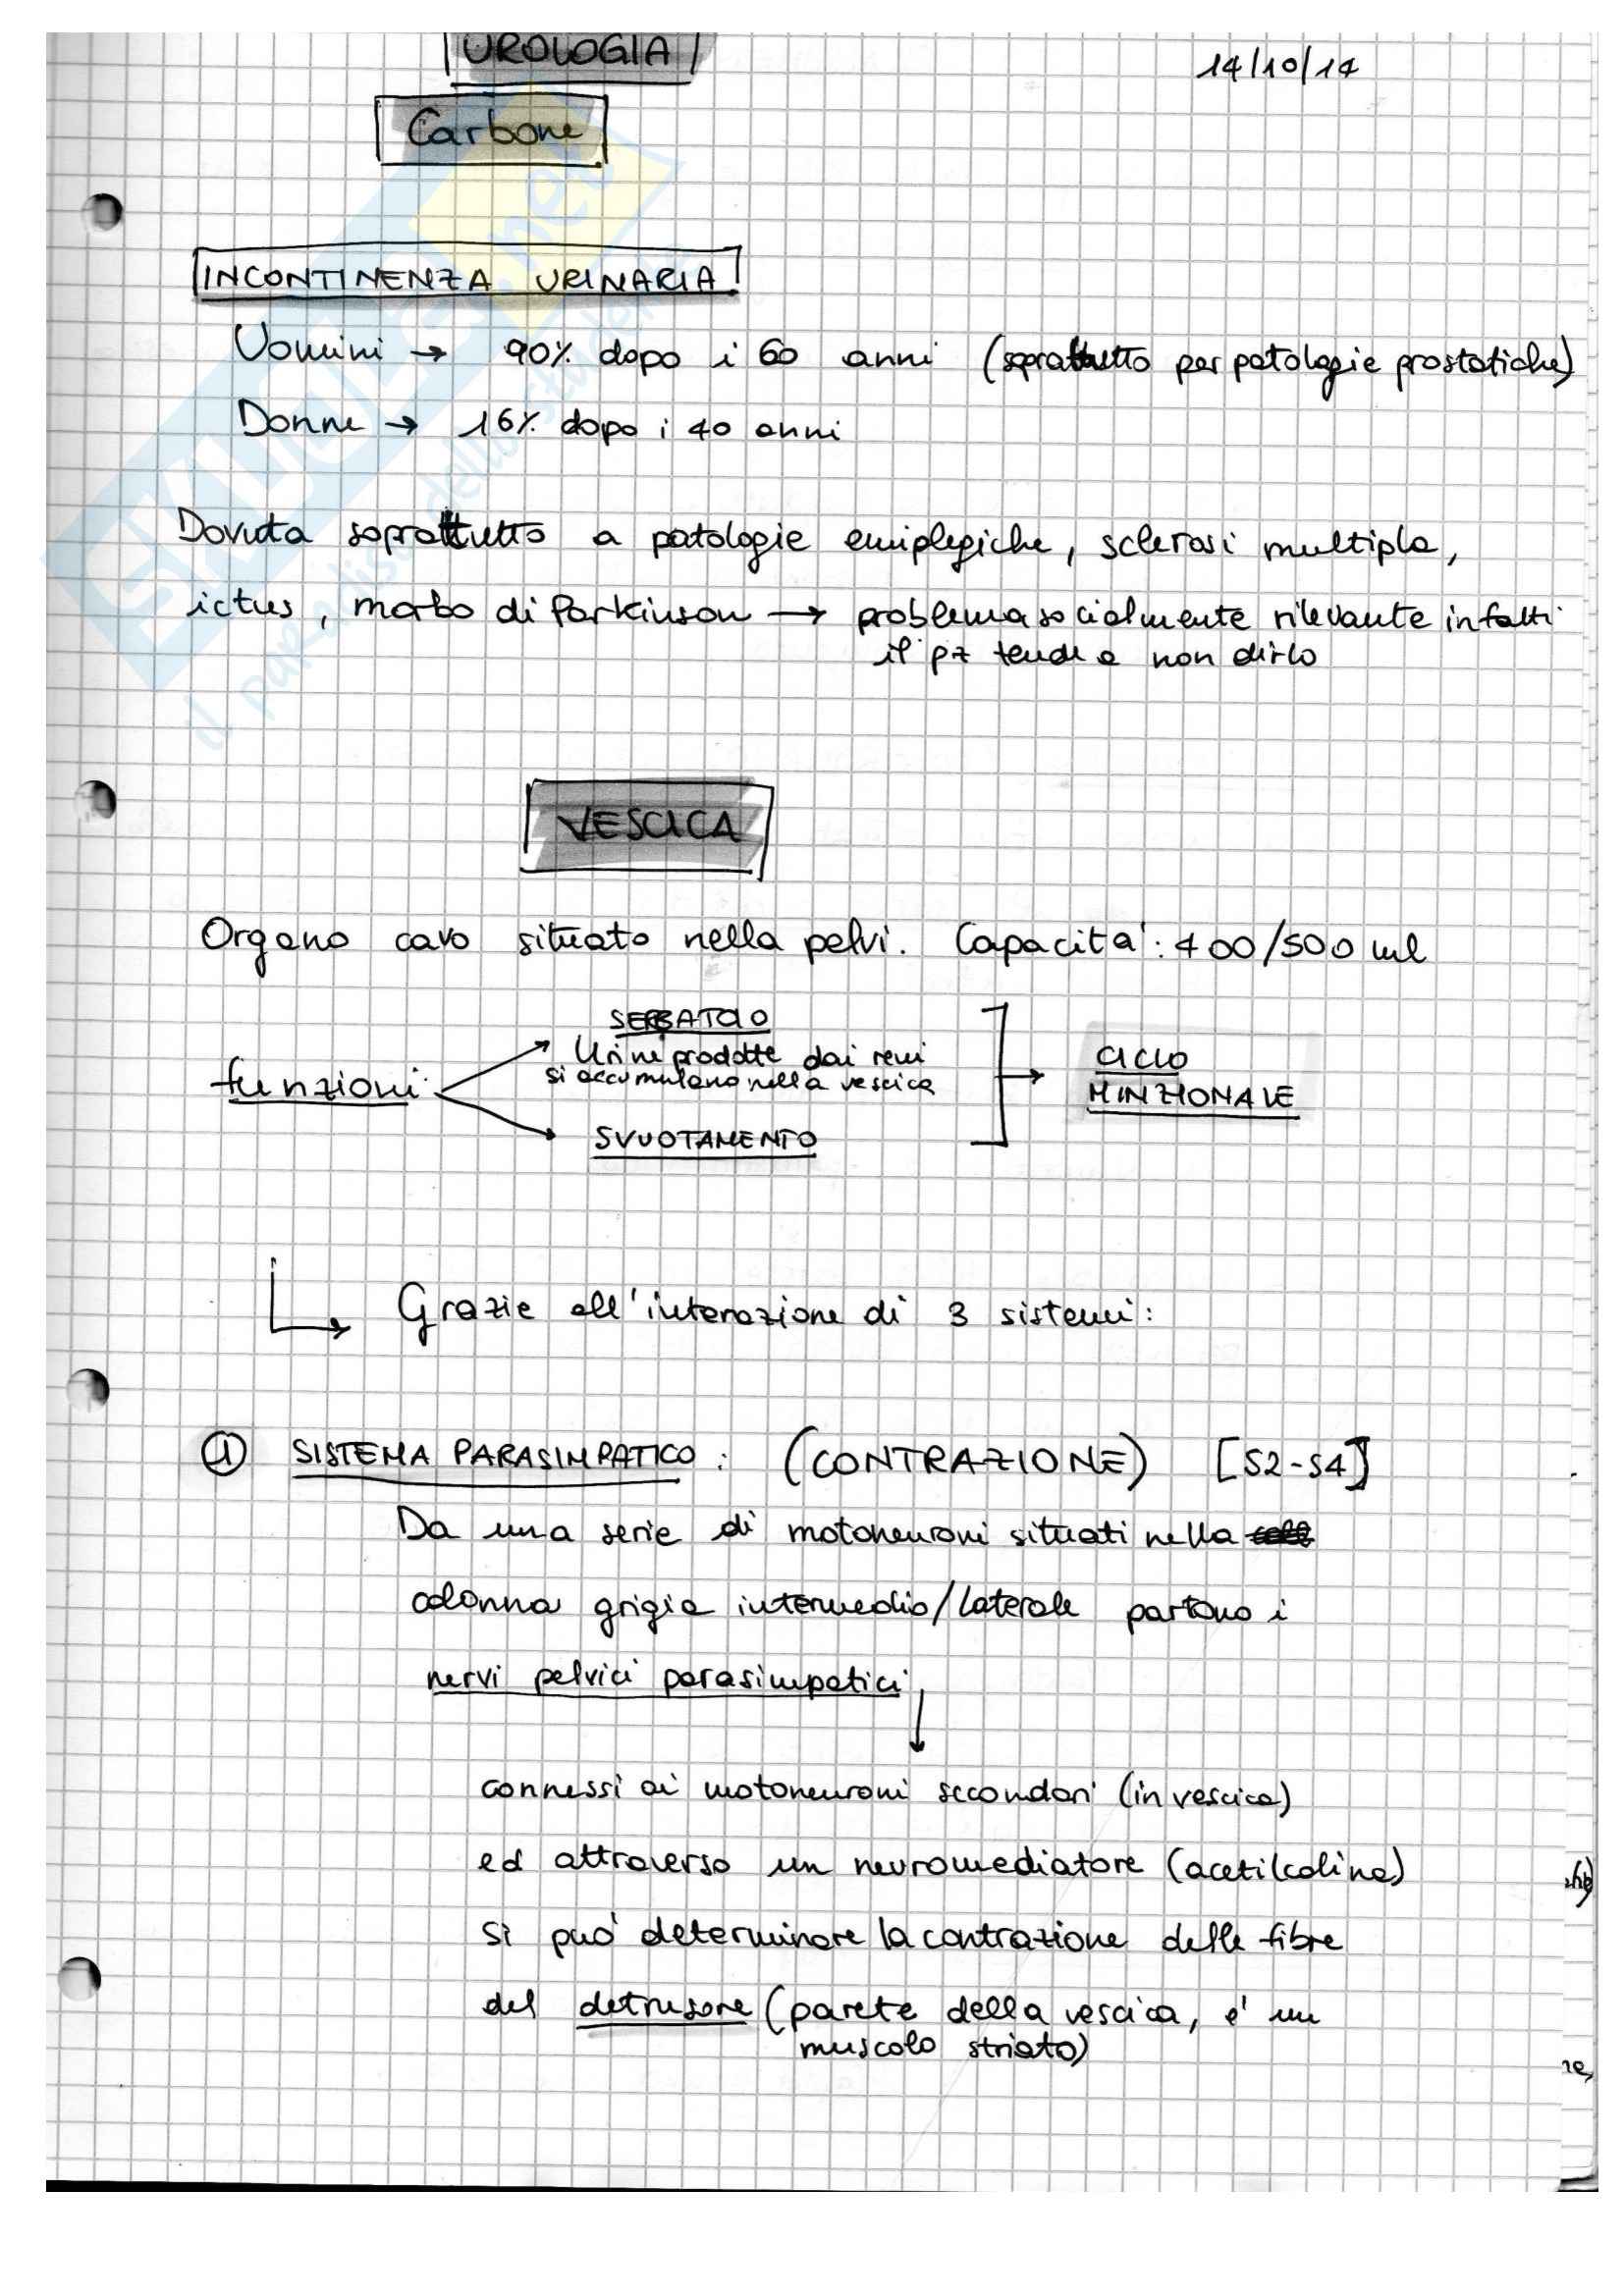 UROLOGIA
14/10/14
Carbone
INCONTINENZA URINARIA
Uomini → 90% dopo i 60 anni (soprattutto per patologie prostatiche)
Donne → 16% dopo i 40 anni
Dovuta soprattutto a patologie emiplegiche, sclerosi multipla,
ictus, morbo di Parkinson → problema socialmente rilevante infatti
il pz tende a non dirlo
VESCICA
Organo cavo situato nella pelvi. Capacità: 400/500 ml
SERBATOIO
Urine prodotte dai reni
si accumulano nella vescica
funzioni
CICLO
MINZIONALE
SVUOTAMENTO
Grazie all'interazione di 3 sistemi:
① SISTEMA PARASIMPATICO: (CONTRAZIONE) [S2-S4]
Da una serie di motoneuroni situati nella
colonna grigia intermedio/laterale partono i
nervi pelvici parasimpatici
connessi ai motoneuroni secondari (in vescica)
ed attraverso un neuromediatore (acetilcolina)
si può determinare la contrazione delle fibre
del detrusore (parete della vescica, è un
muscolo striato)
SKUOLA.net
il paradiso dello studente